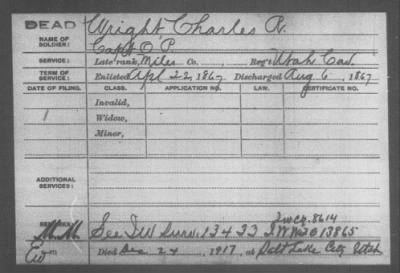 DEAD
Wright Charles R.
NAME OF SOLDIER:
Capt O. P.
SERVICE: Late rank, Miles Co. , Reg't Utah Cav.
TERM OF SERVICE: Enlisted Apl 22, 1867, Discharged Aug 6, 1867
DATE OF FILING. CLASS. APPLICATION NO. LAW. CERTIFICATE NO.
Invalid,
1 Widow,
Minor,
ADDITIONAL SERVICES:
8614
See IW Surv. 13422 IW 13865
Died Dec 24, 1917, at Salt Lake City Utah